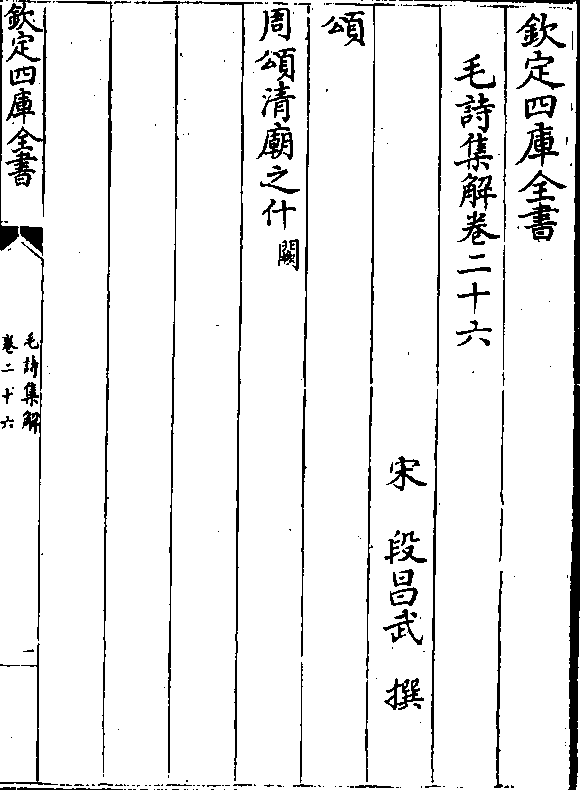 欽定四庫全書
毛詩集解卷二十六
宋 段昌武 撰
頌
周頌清廟之什闕
欽定四庫全書
毛詩集解
卷二十六
一